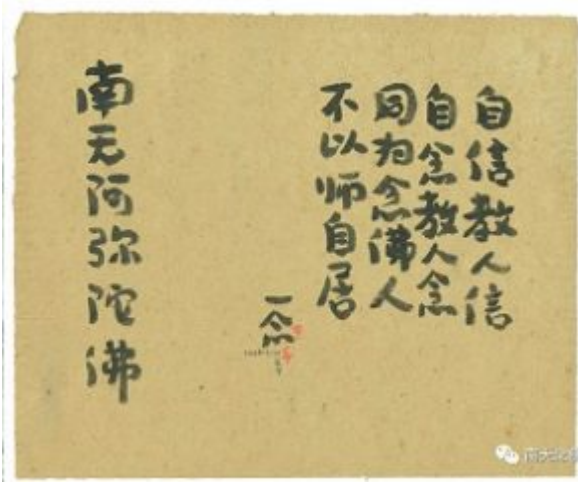 自信教人信
自念教人念
同为念佛人
不以师自居
一念
南无阿弥陀佛